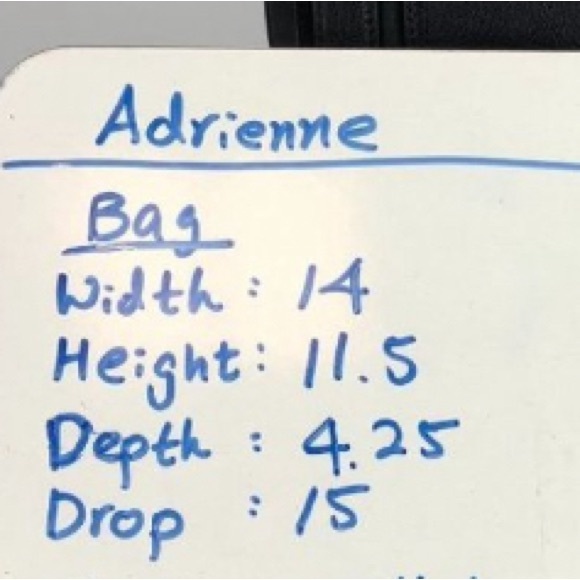 Adrienne
Bag
Width : 14
Height : 11.5
Depth : 4.25
Drop : 15